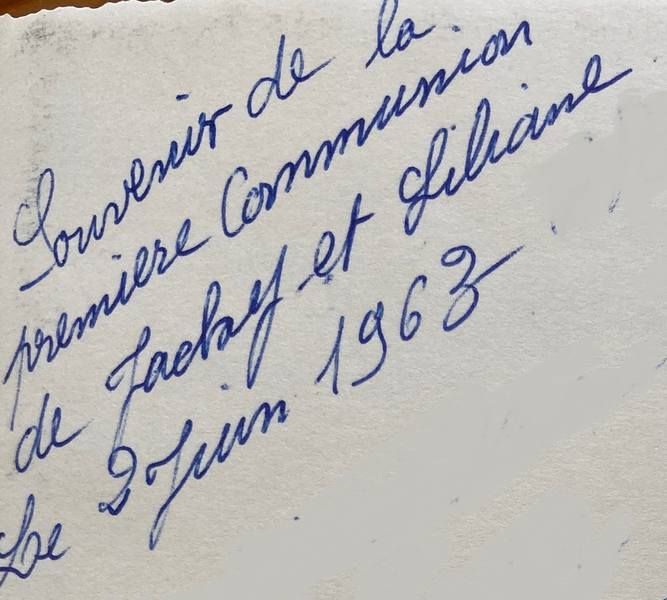 Souvenir de la
premiere Communion
de Jacky et Liliane
Le 2 Juin 1963